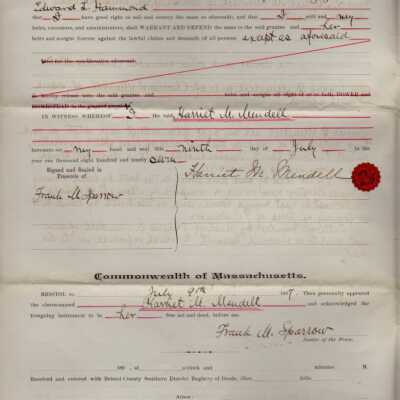 Edward L. Hammond
that I have good right to sell and convey the same as aforesaid; and that I will and my
heirs, executors, and administrators, shall WARRANT AND DEFEND the same to the said grantee and her
heirs and assigns forever against the lawful claims and demands of all persons except as aforesaid
And for the consideration aforesaid
do hereby release unto the said grantee and heirs and assigns all right of or to both DOWER and
HOMESTEAD in the granted premises
IN WITNESS WHEREOF I the said Harriet M. Mendell
hereunto set my hand and seal this ninth day of July in the
year one thousand eight hundred and ninety seven
Signed and Sealed in
Presence of
Frank M. Sparrow
Harriet M. Mendell
Commonwealth of Massachusetts.
BRISTOL ss. July 9th 1897. Then personally appeared
the abovenamed Harriet M. Mendell and acknowledged the
foregoing instrument to be her free act and deed, before me,
Frank M. Sparrow
Justice of the Peace.
189 , at o'clock and minutes M.
Received and entered with Bristol County Southern District Registry of Deeds, libro folio
Attest: